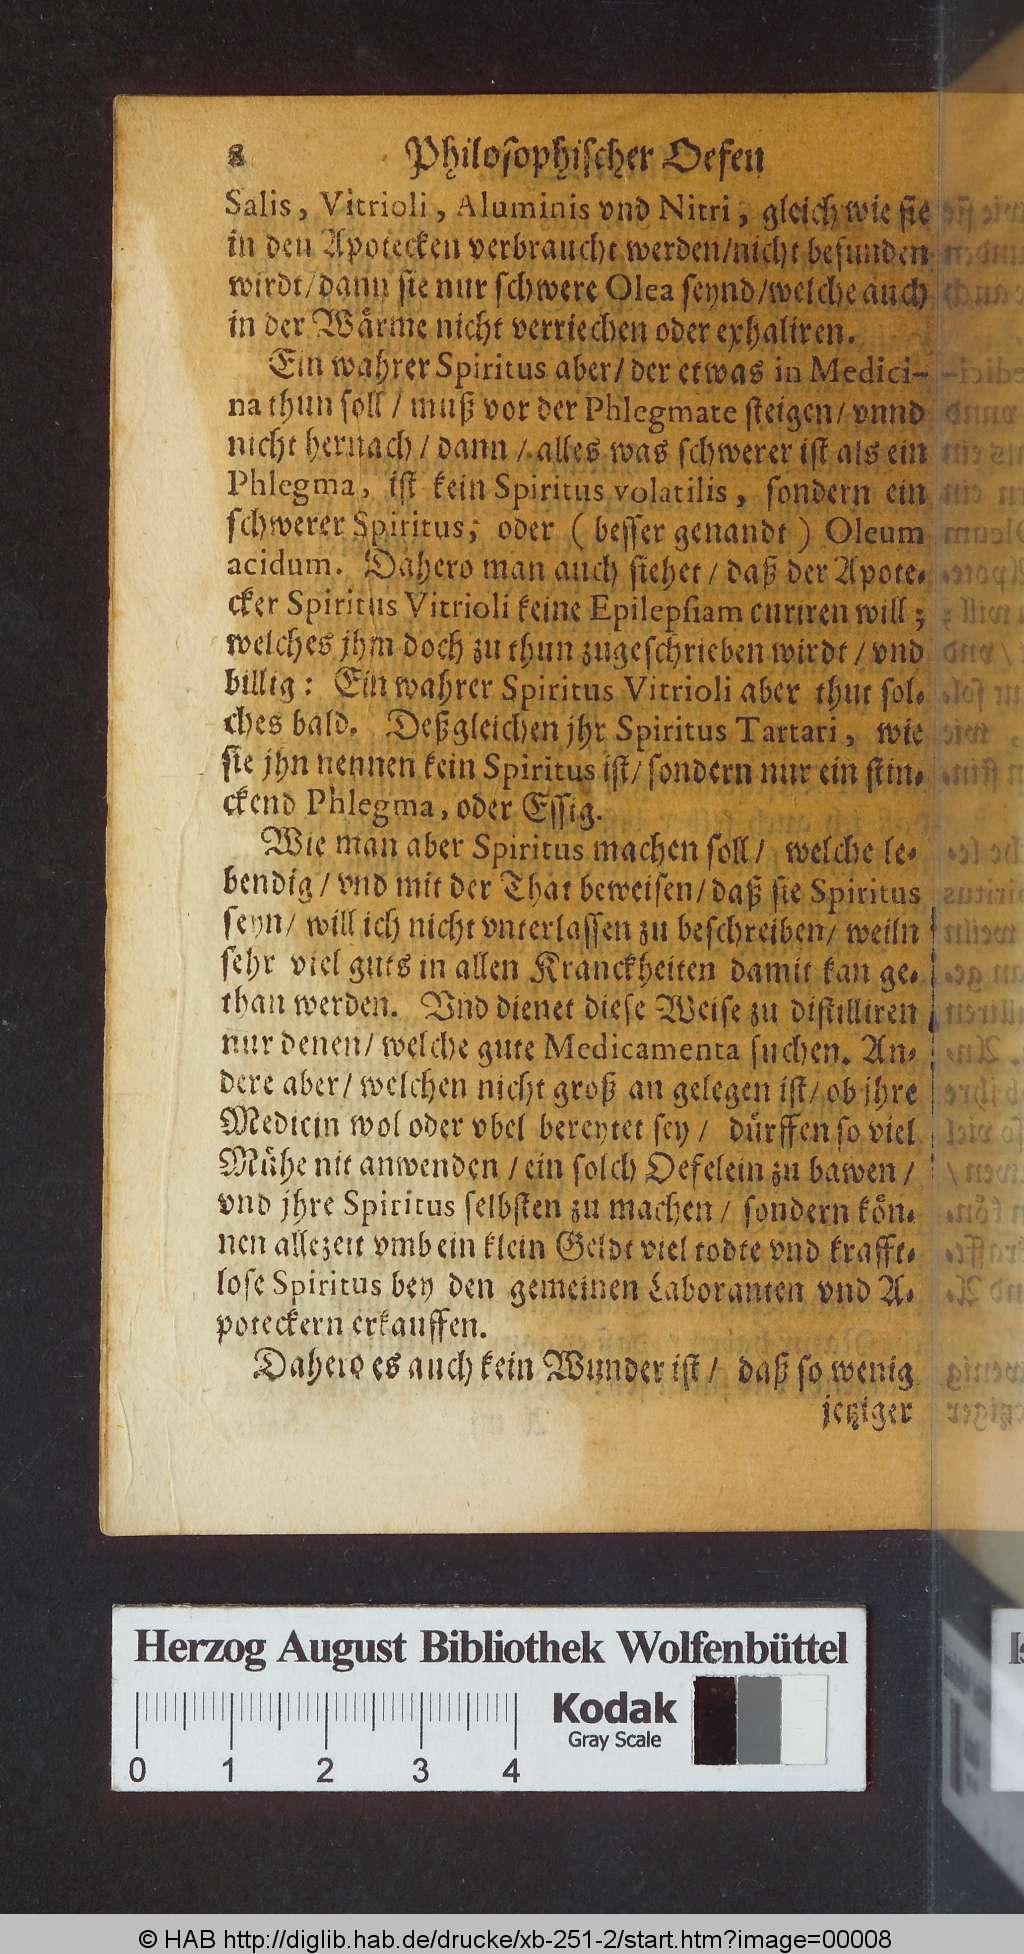 8 Philosophischer Oefen
Salis, Vitrioli, Aluminis vnd Nitri, gleich wie sie
in den Apotecken verbraucht werden/nicht befunden
wirdt/dann sie nur schwere Olea seynd/welche auch
in der Wärme nicht verriechen oder exhaliren.
Ein wahrer Spiritus aber/ der etwas in Medici-
na thun soll/ muß vor der Phlegmate steigen/ vnnd
nicht hernach/ dann/ alles was schwerer ist als ein
Phlegma, ist kein Spiritus volatilis, sondern ein
schwerer Spiritus; oder ( besser genandt ) Oleum
acidum. Dahero man auch siehet/ daß der Apote-
cker Spiritus Vitrioli keine Epilepsiam curiren will;
welches jhm doch zu thun zugeschrieben wirdt/ vnd
billig: Ein wahrer Spiritus Vitrioli aber thut sol-
ches bald. Deßgleichen jhr Spiritus Tartari, wie
sie jhn nennen kein Spiritus ist/ sondern nur ein stin-
ckend Phlegma, oder Essig.
Wie man aber Spiritus machen soll/ welche le-
bendig/ vnd mit der That beweisen/ daß sie Spiritus
seyn/ will ich nicht vnterlassen zu beschreiben/ weiln
sehr viel guts in allen Kranckheiten damit kan ge-
than werden. Vnd dienet diese Weise zu distilliren
nur denen/ welche gute Medicamenta suchen. An-
dere aber/ welchen nicht groß an gelegen ist/ ob jhre
Medicin wol oder vbel bereytet sey/ dürffen so viel
Mühe nit anwenden/ ein solch Oefelein zu bawen/
vnd jhre Spiritus selbsten zu machen/ sondern kön-
nen allezeit vmb ein klein Geldt viel todte vnd krafft-
lose Spiritus bey den gemeinen Laboranten vnd A-
poteckern erkauffen.
Dahero es auch kein Wunder ist/ daß so wenig
jetziger
Herzog August Bibliothek Wolfenbüttel
Kodak
Gray Scale
0 1 2 3 4
© HAB http://diglib.hab.de/drucke/xb-251-2/start.htm?image=00008